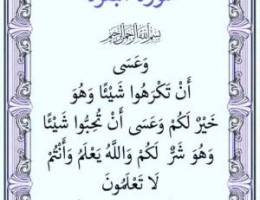 بسم الله الرحمن الرحيم
وَعَسَى
أَنْ تَكْرَهُوا شَيْئًا وَهُوَ
خَيْرٌ لَكُمْ وَعَسَى أَنْ تُحِبُّوا شَيْئًا
وَهُوَ شَرٌّ لَكُمْ وَاللَّهُ يَعْلَمُ وَأَنْتُمْ
لَا تَعْلَمُونَ